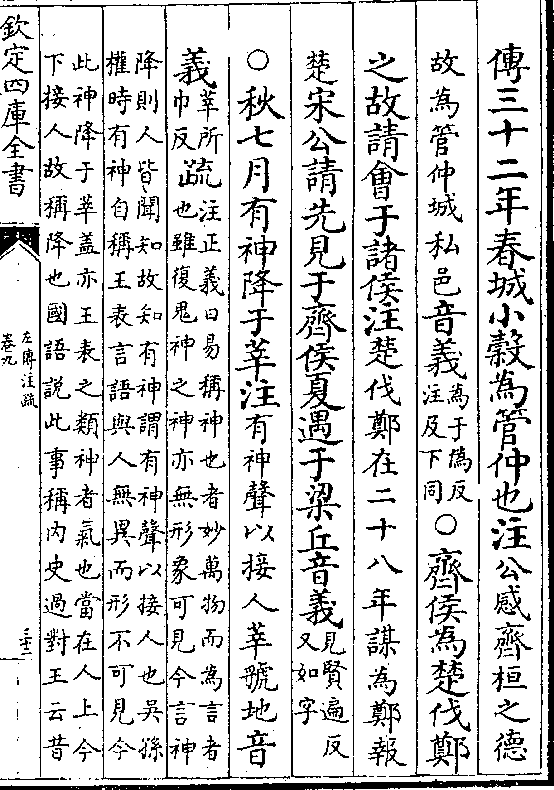 傳三十二年春城小穀為管仲也注公感齊桓之德
故為管仲城私邑音義為于偽反注及下同○齊侯為楚伐鄭
之故請會于諸侯注楚伐鄭在二十八年謀為鄭報
楚宋公請先見于齊侯夏遇于梁丘音義見賢遍反又如字
○秋七月有神降于莘注有神聲以接人莘虢地音
義莘所巾反疏注正義曰易稱神也者妙萬物而為言者也雖復鬼神之神亦無形象可見今言神
降則人皆聞知故知有神謂有神聲以接人也吳孫
權時有神自稱王表言語與人無異而形不可見今
此神降于莘蓋亦王表之類神者氣也當在人上今
下接人故稱降也國語說此事稱內史過對王云昔
欽定四庫全書
左傳注疏
卷九